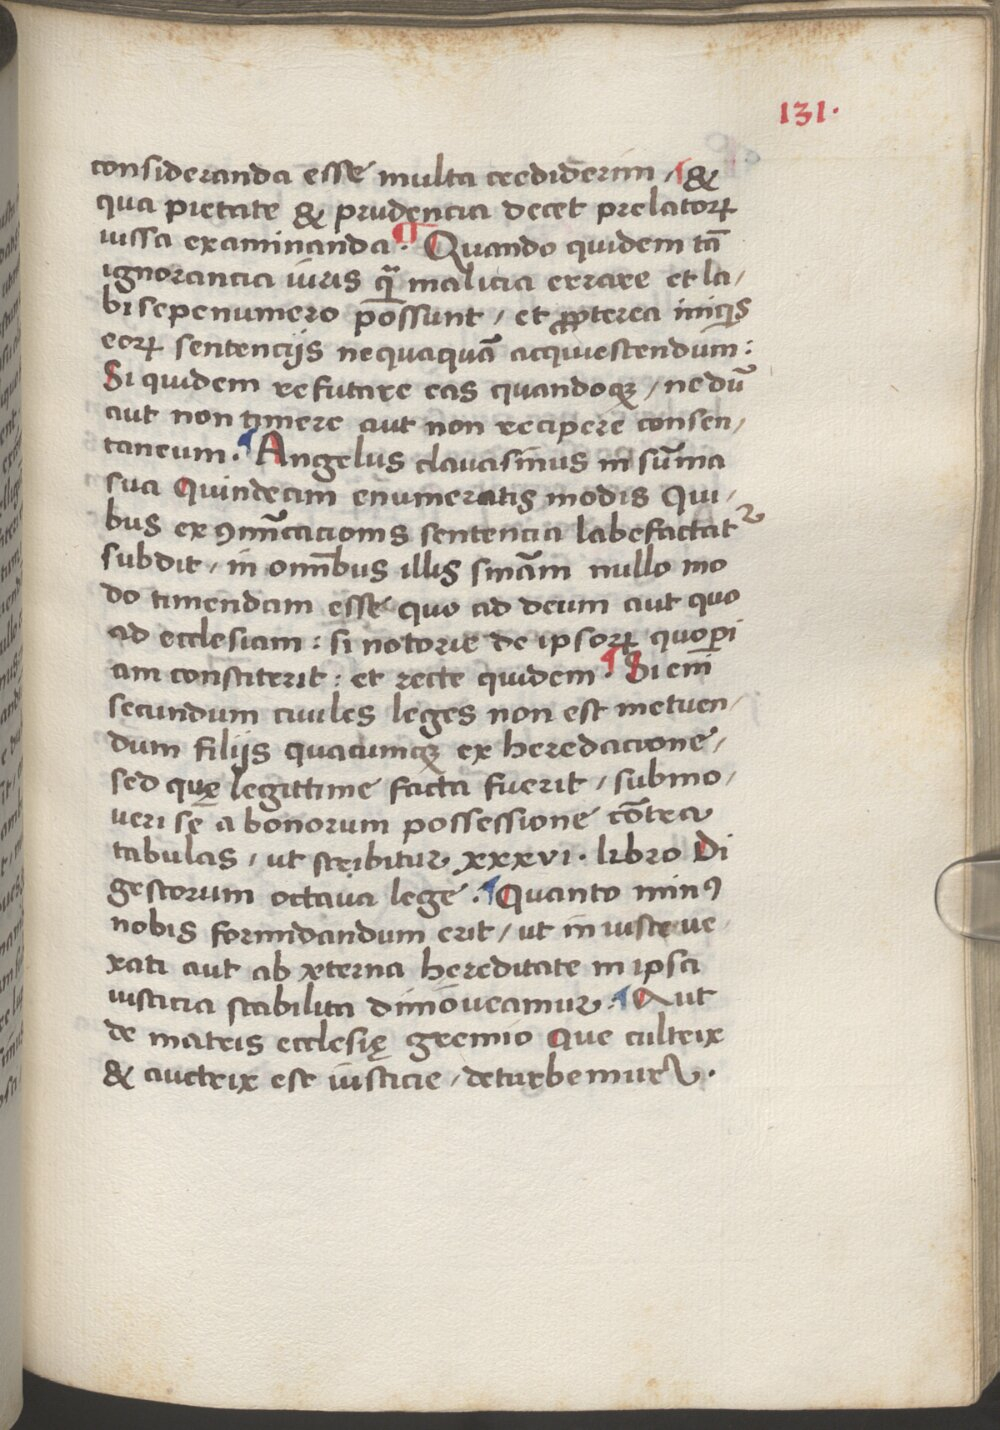 131.
consideranda esse multa crediderim / ¶ &
qua pietate & prudencia decet prelatorꝝ
iussa examinanda. ¶ Quando quidem tā
ignorancia iuris q̄ malicia errare et la/
bi sepenumero possunt / et ꝓpterea iniqis
eorꝝ sentencijs nequaquā acquiescendum:
Si quidem refutare eas quandoqꝫ / nedū
aut non timere aut non recipere consen/
taneum. ¶ Angelus clauasinus in sūma
sua Quindecim enumeratis modis Qui/
bus exꝯmn̄icacionis sentencia labefactatꝛ
subdit / in omībus illis sniām nullo mo
do timendam esse quo ad deum aut quo
ad ecclesiam: si notorie de ipsorꝝ quopi
am constiterit: et recte quidem. ¶ Si eni̅
secundum ciuiles leges non est metuen/
dum filijs quacumqꝫ ex heredacione /
sed quę legittime facta fuerit / submo/
ueri sē a bonorum possessione cōtra
tabulas / ut scribitur xxxvi. libro Di
gestorum octaua lege. ¶ Quanto minꝰ
nobis formidandum erit / ut in iuste ue
xati aut ab ęterna hereditate in ipsa
iusticia stabilita dimoueamur. ¶ Aut
de matris ecclesię gremio Que cultrix
& auctrix est iusticie / deturbemur.